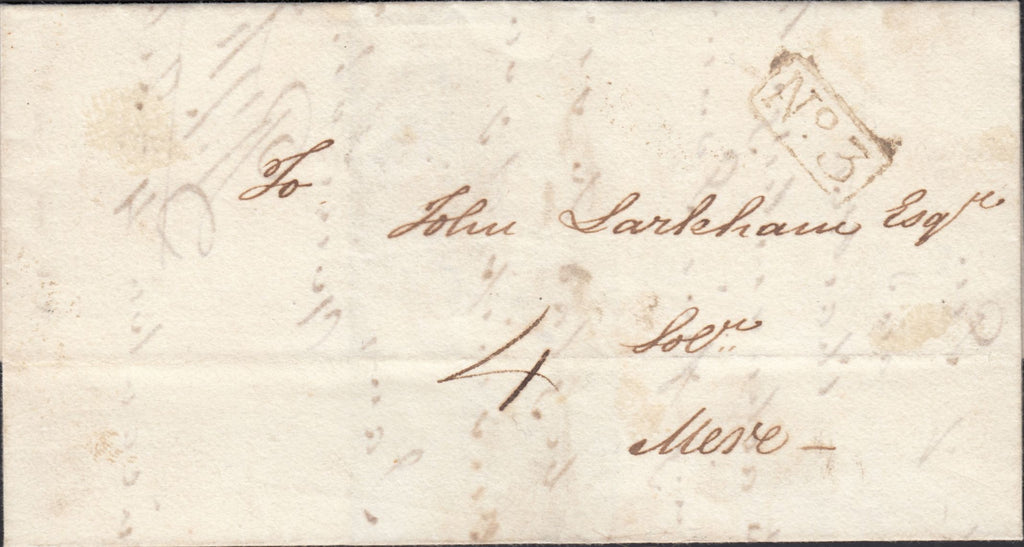 No. 3.
To
John Larkham Esqre
4
Solr.
Mere —